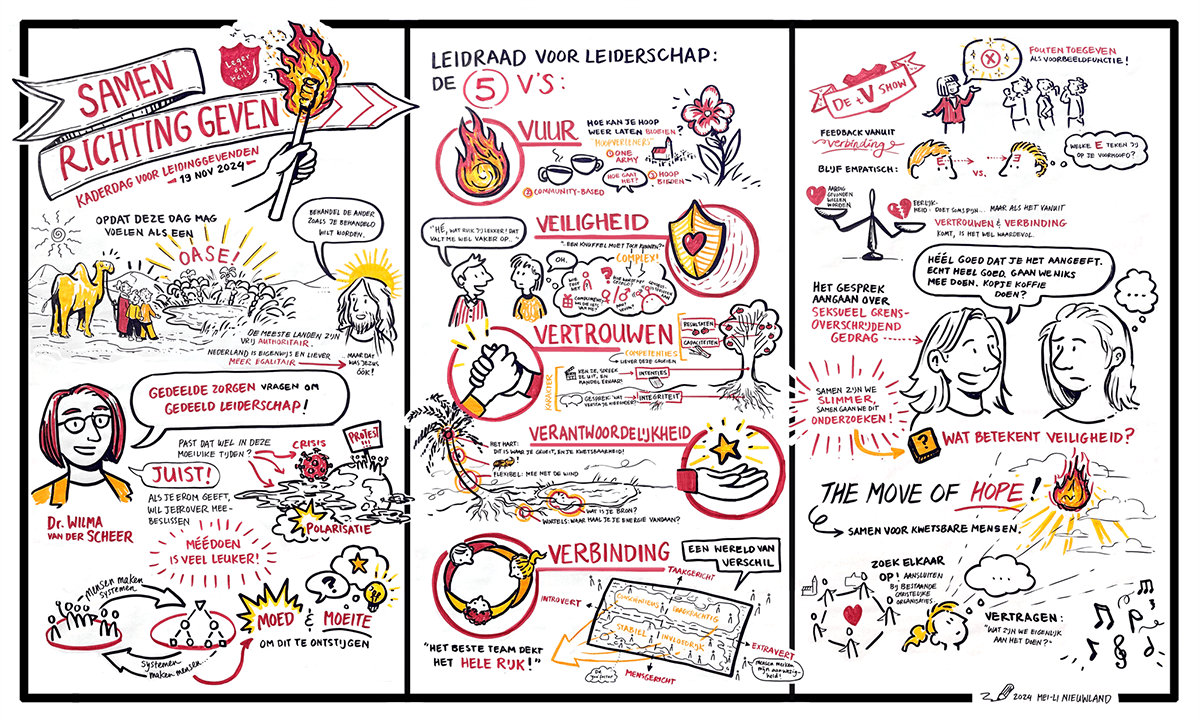 Leger
des
Heils
SAMEN
RICHTING GEVEN
KADERDAG VOOR LEIDINGGEVENDEN
19 NOV 2024
OPDAT DEZE DAG MAG
VOELEN ALS EEN
OASE!
BEHANDEL DE ANDER
ZOALS JE BEHANDELD
WILT WORDEN.
DE MEESTE LANDEN ZIJN
VRIJ AUTHORITAIR.
NEDERLAND IS EIGENWIJS EN LIEVER
MEER EGALITAIR
MAAR DAT
WAS JEZUS
ÓÓK!
GEDEELDE ZORGEN VRAGEN OM
GEDEELD LEIDERSCHAP!
PAST DAT WEL IN DEZE
MOEILIJKE TIJDEN?
CRISIS
PROTEST
JUIST!
ALS JE EROM GEEFT,
WIL JE EROVER MEE-
BESLISSEN
POLARISATIE
Dr. WILMA
VAN DER SCHEER
MÉÉDOEN
IS VEEL LEUKER!
Mensen maken
systemen
systemen
maken mensen...
MOED & MOEITE
OM DIT TE ONTSTIJGEN
?
LEIDRAAD VOOR LEIDERSCHAP:
DE 5 V'S:
VUUR
HOE KAN JE HOOP
WEER LATEN BLOEIEN?
"HOOPVERLENERS"
1 ONE
ARMY
HOE GAAT
HET?
3 HOOP
BIEDEN
2 COMMUNITY-BASED
VEILIGHEID
"HÉ, WAT RUIK JIJ LEKKER! DAT
VALT ME WEL VAKER OP.."
"..EEN KNUFFEL MOET TOCH KUNNEN?"
COMPLEX!
OH.
VERTROUWEN
RESULTATEN
CAPACITEITEN
COMPETENTIES
LIEVER DEZE GROEIEN
KARAKTER
KEN ZE, SPREEK
ZE UIT, EN
HANDEL ERNAAR!
INTENTIES
GESPREK: WAT
VERSTA JE HIERONDER?
INTEGRITEIT
VERANTWOORDELIJKHEID
HET HART:
DIT IS WAAR JE GROEIT, EN JE KWETSBAARHEID!
FLEXIBEL: MEE MET DE WIND
WAT IS JE BRON?
WORTELS: WAAR HAAL JE JE ENERGIE VANDAAN?
VERBINDING
EEN WERELD VAN
VERSCHIL
TAAKGERICHT
INTROVERT
CONSCIËNTIEUS
DAADKRACHTIG
STABIEL
INVLOEDRIJK
EXTRAVERT
MENSGERICHT
"HET BESTE TEAM DEKT
HET HELE RIJK!"
MENSEN MERKEN
MIJN AANWEZIG-
HEID!
DE tV SHOW
FOUTEN TOEGEVEN
ALS VOORBEELDFUNCTIE!
X
FEEDBACK VANUIT
verbinding
BLIJF EMPATISCH:
VS.
WELKE E TEKEN JIJ
OP JE VOORHOOFD?
AARDIG
GEVONDEN
WILLEN
WORDEN
EERLIJK-
HEID: DOET SOMS PIJN... MAAR ALS HET VANUIT
VERTROUWEN & VERBINDING
KOMT, IS HET WEL WAARDEVOL.
HÉÉL GOED DAT JE HET AANGEEFT.
ECHT HEEL GOED. GAAN WE NIKS
MEE DOEN. KOPJE KOFFIE
DOEN?
...
HET GESPREK
AANGAAN OVER
SEKSUEEL GRENS-
OVERSCHRIJDEND
GEDRAG
SAMEN ZIJN WE
SLIMMER,
SAMEN GAAN WE DIT
ONDERZOEKEN!
?
WAT BETEKENT VEILIGHEID?
THE MOVE OF HOPE!
SAMEN VOOR KWETSBARE MENSEN.
ZOEK ELKAAR
OP! AANSLUITEN
BIJ BESTAANDE
CHRISTELIJKE
ORGANISATIES.
...
VERTRAGEN:
"WAT ZIJN WE EIGENLIJK
AAN HET DOEN?"
2024 MEI-LI NIEUWLAND